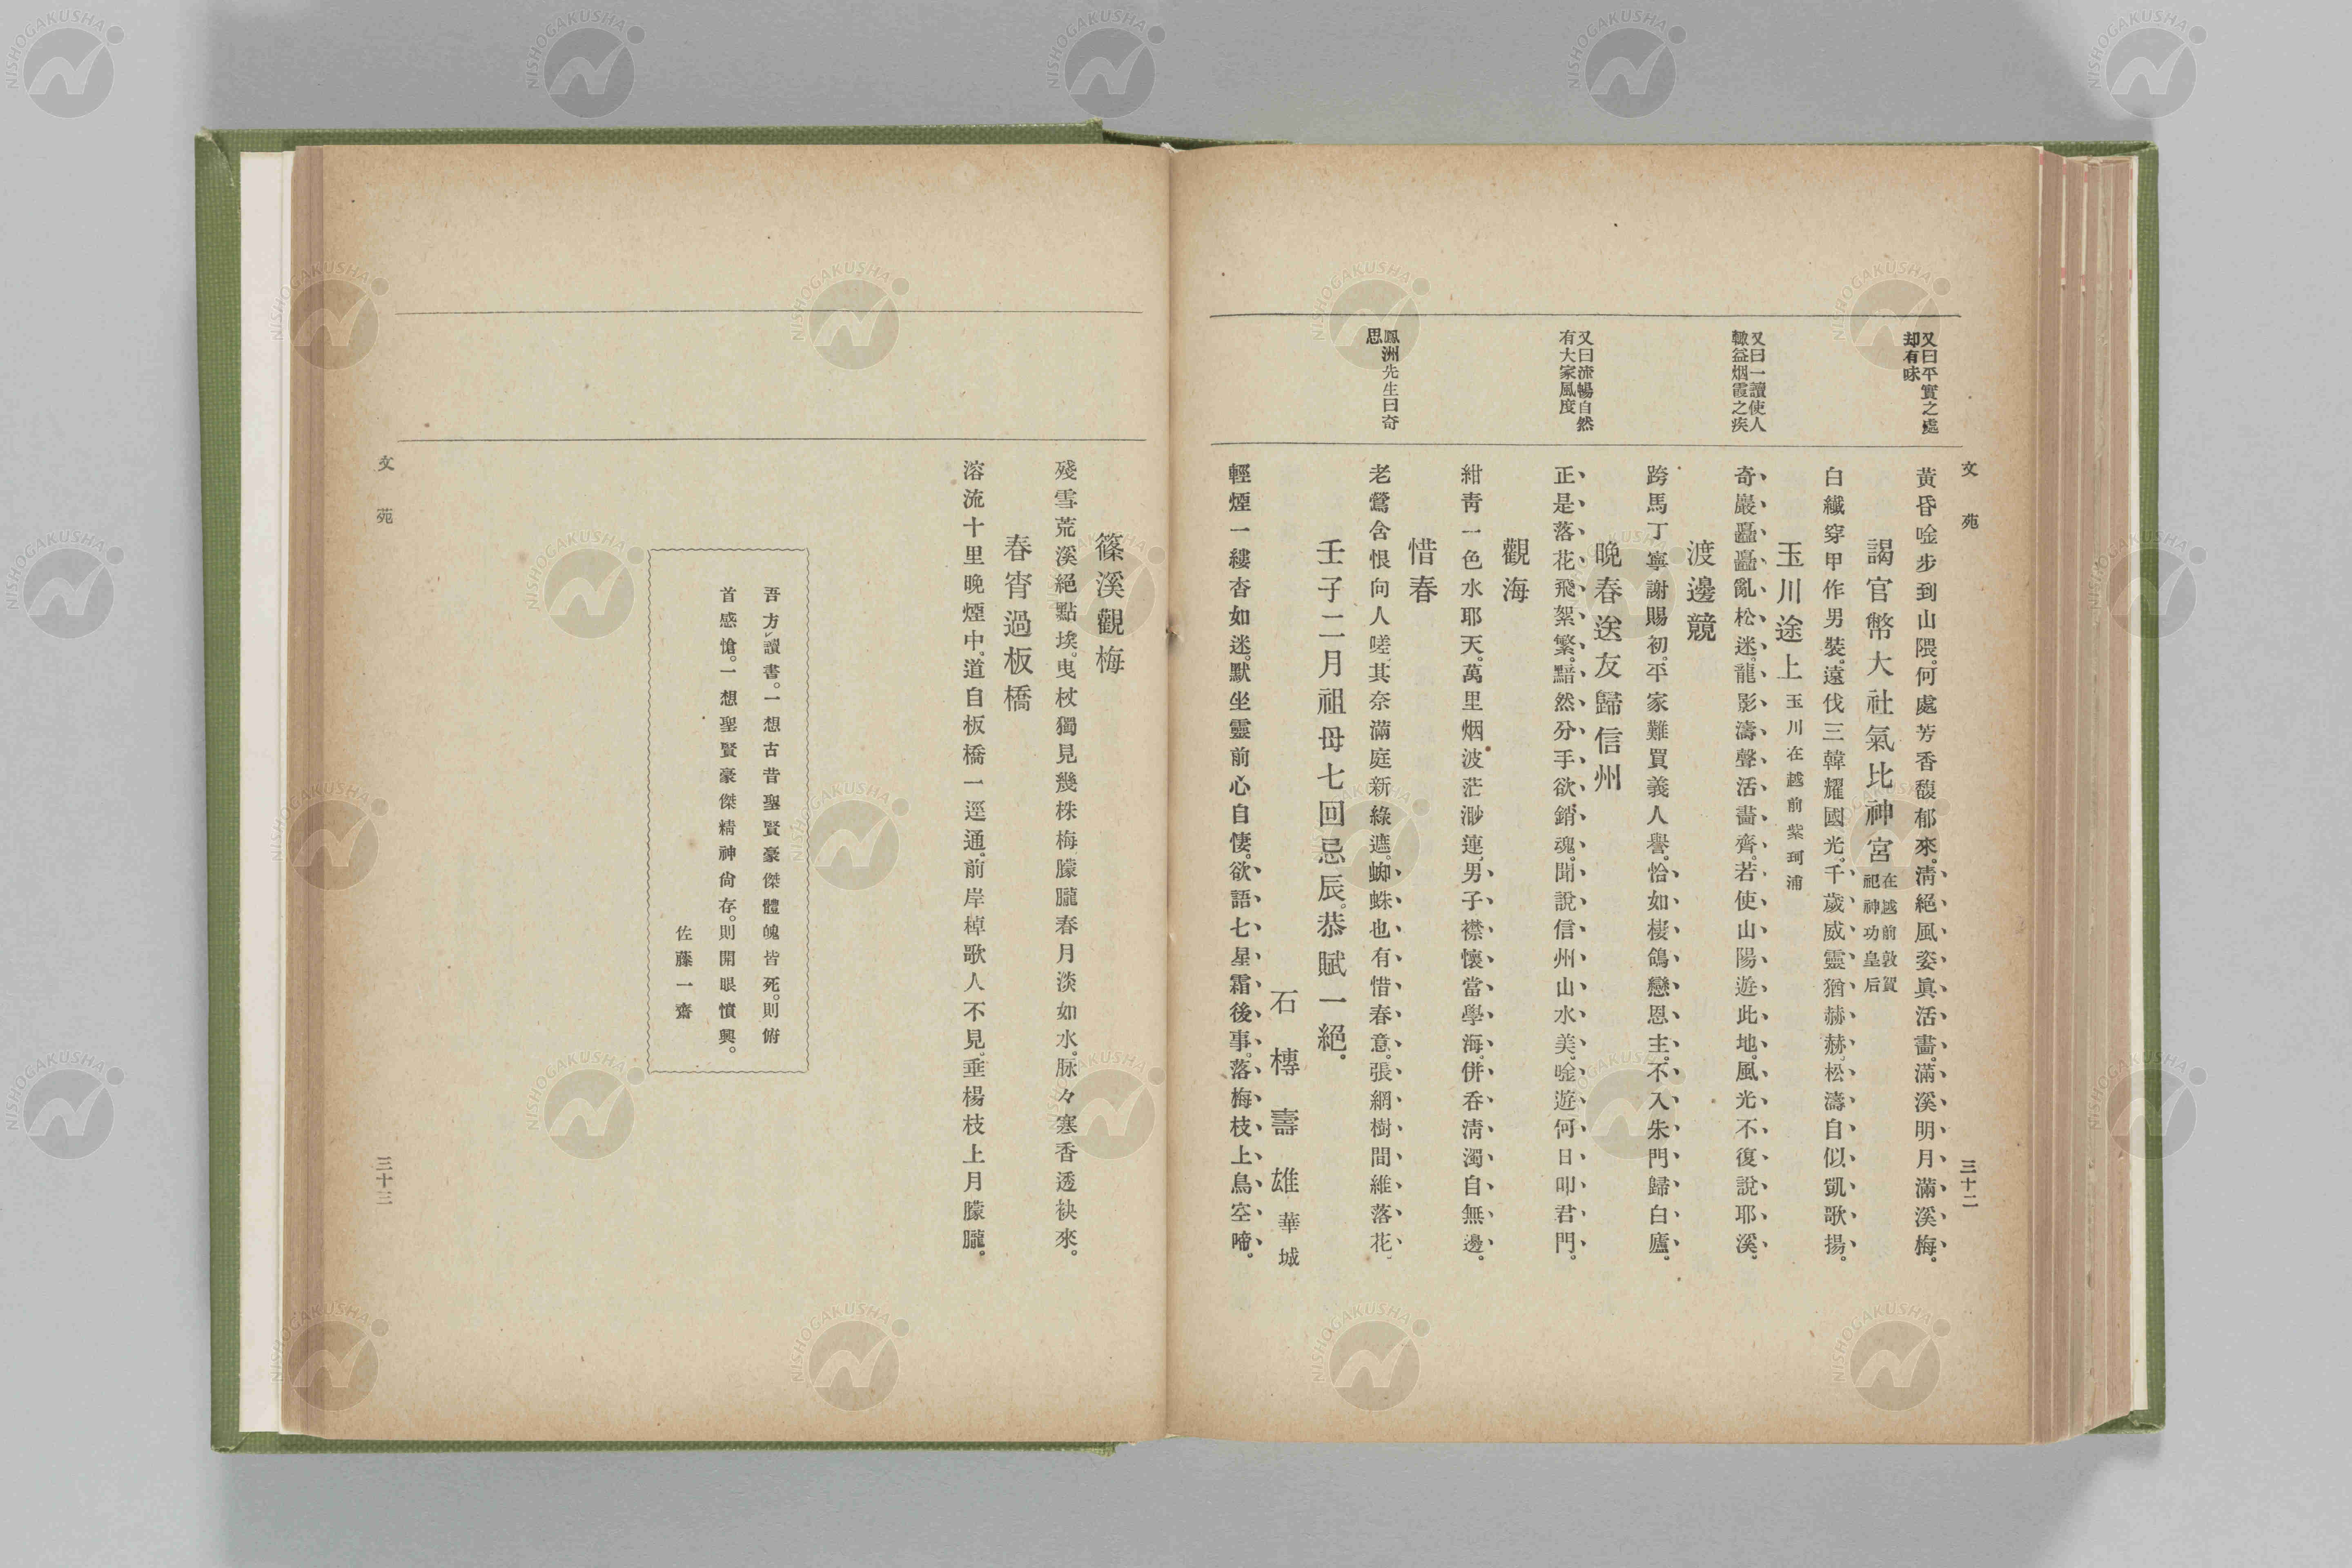 文苑
三十二
又曰平實之處
却有味
又曰一讀使人
輙益烟霞之疾
又曰流暢自然
有大家風度
鳳洲先生曰奇
思
黃昏唫步到山隈。何處芳香馥郁來。淸絕風姿眞活畵。滿溪明月滿溪梅。
謁官幣大社氣比神宮 在越前敦賀
祀神功皇后
白纎穿甲作男裝。遠伐三韓耀國光。千歲威靈猶赫赫。松濤自似凱歌揚。
玉川途上 玉川在越前紫珂浦
奇巖矗矗亂松迷。龍影濤聲活畵齊。若使山陽遊此地。風光不復說耶溪。
渡邊競
跨馬丁寧謝賜初。平家難買義人譽。恰如棲鴿戀恩主。不入朱門歸白廬。
晩春送友歸信州
正是落花飛絮繁。黯然分手欲銷魂。聞說信州山水美。唫遊何日叩君門。
觀海
紺靑一色水耶天。萬里烟波茫渺連。男子襟懷當學海。併呑淸濁自無邊。
惜春
老鶯含恨向人嗟。其奈滿庭新綠遮。蜘蛛也有惜春意。張網樹間維落花。
壬子二月祖母七回忌辰。恭賦一絕。
石樽壽雄 華城
輕煙一縷杳如迷。默坐靈前心自悽。欲語七星霜後事。落梅枝上鳥空啼。
篠溪觀梅
殘雪荒溪絕點埃。曳杖獨見幾株梅朦朧春月淡如水。脉々寒香透袂來。
春宵過板橋
溶流十里晚煙中。道自板橋一逕通。前岸棹歌人不見。垂楊枝上月朦朧。
吾方讀書。一想古昔聖賢豪傑體魄皆死。則俯
首感愴。一想聖賢豪傑精神尙存。則開眼憤興。
佐藤一齋
文苑
三十三
NISHOGAKUSHA